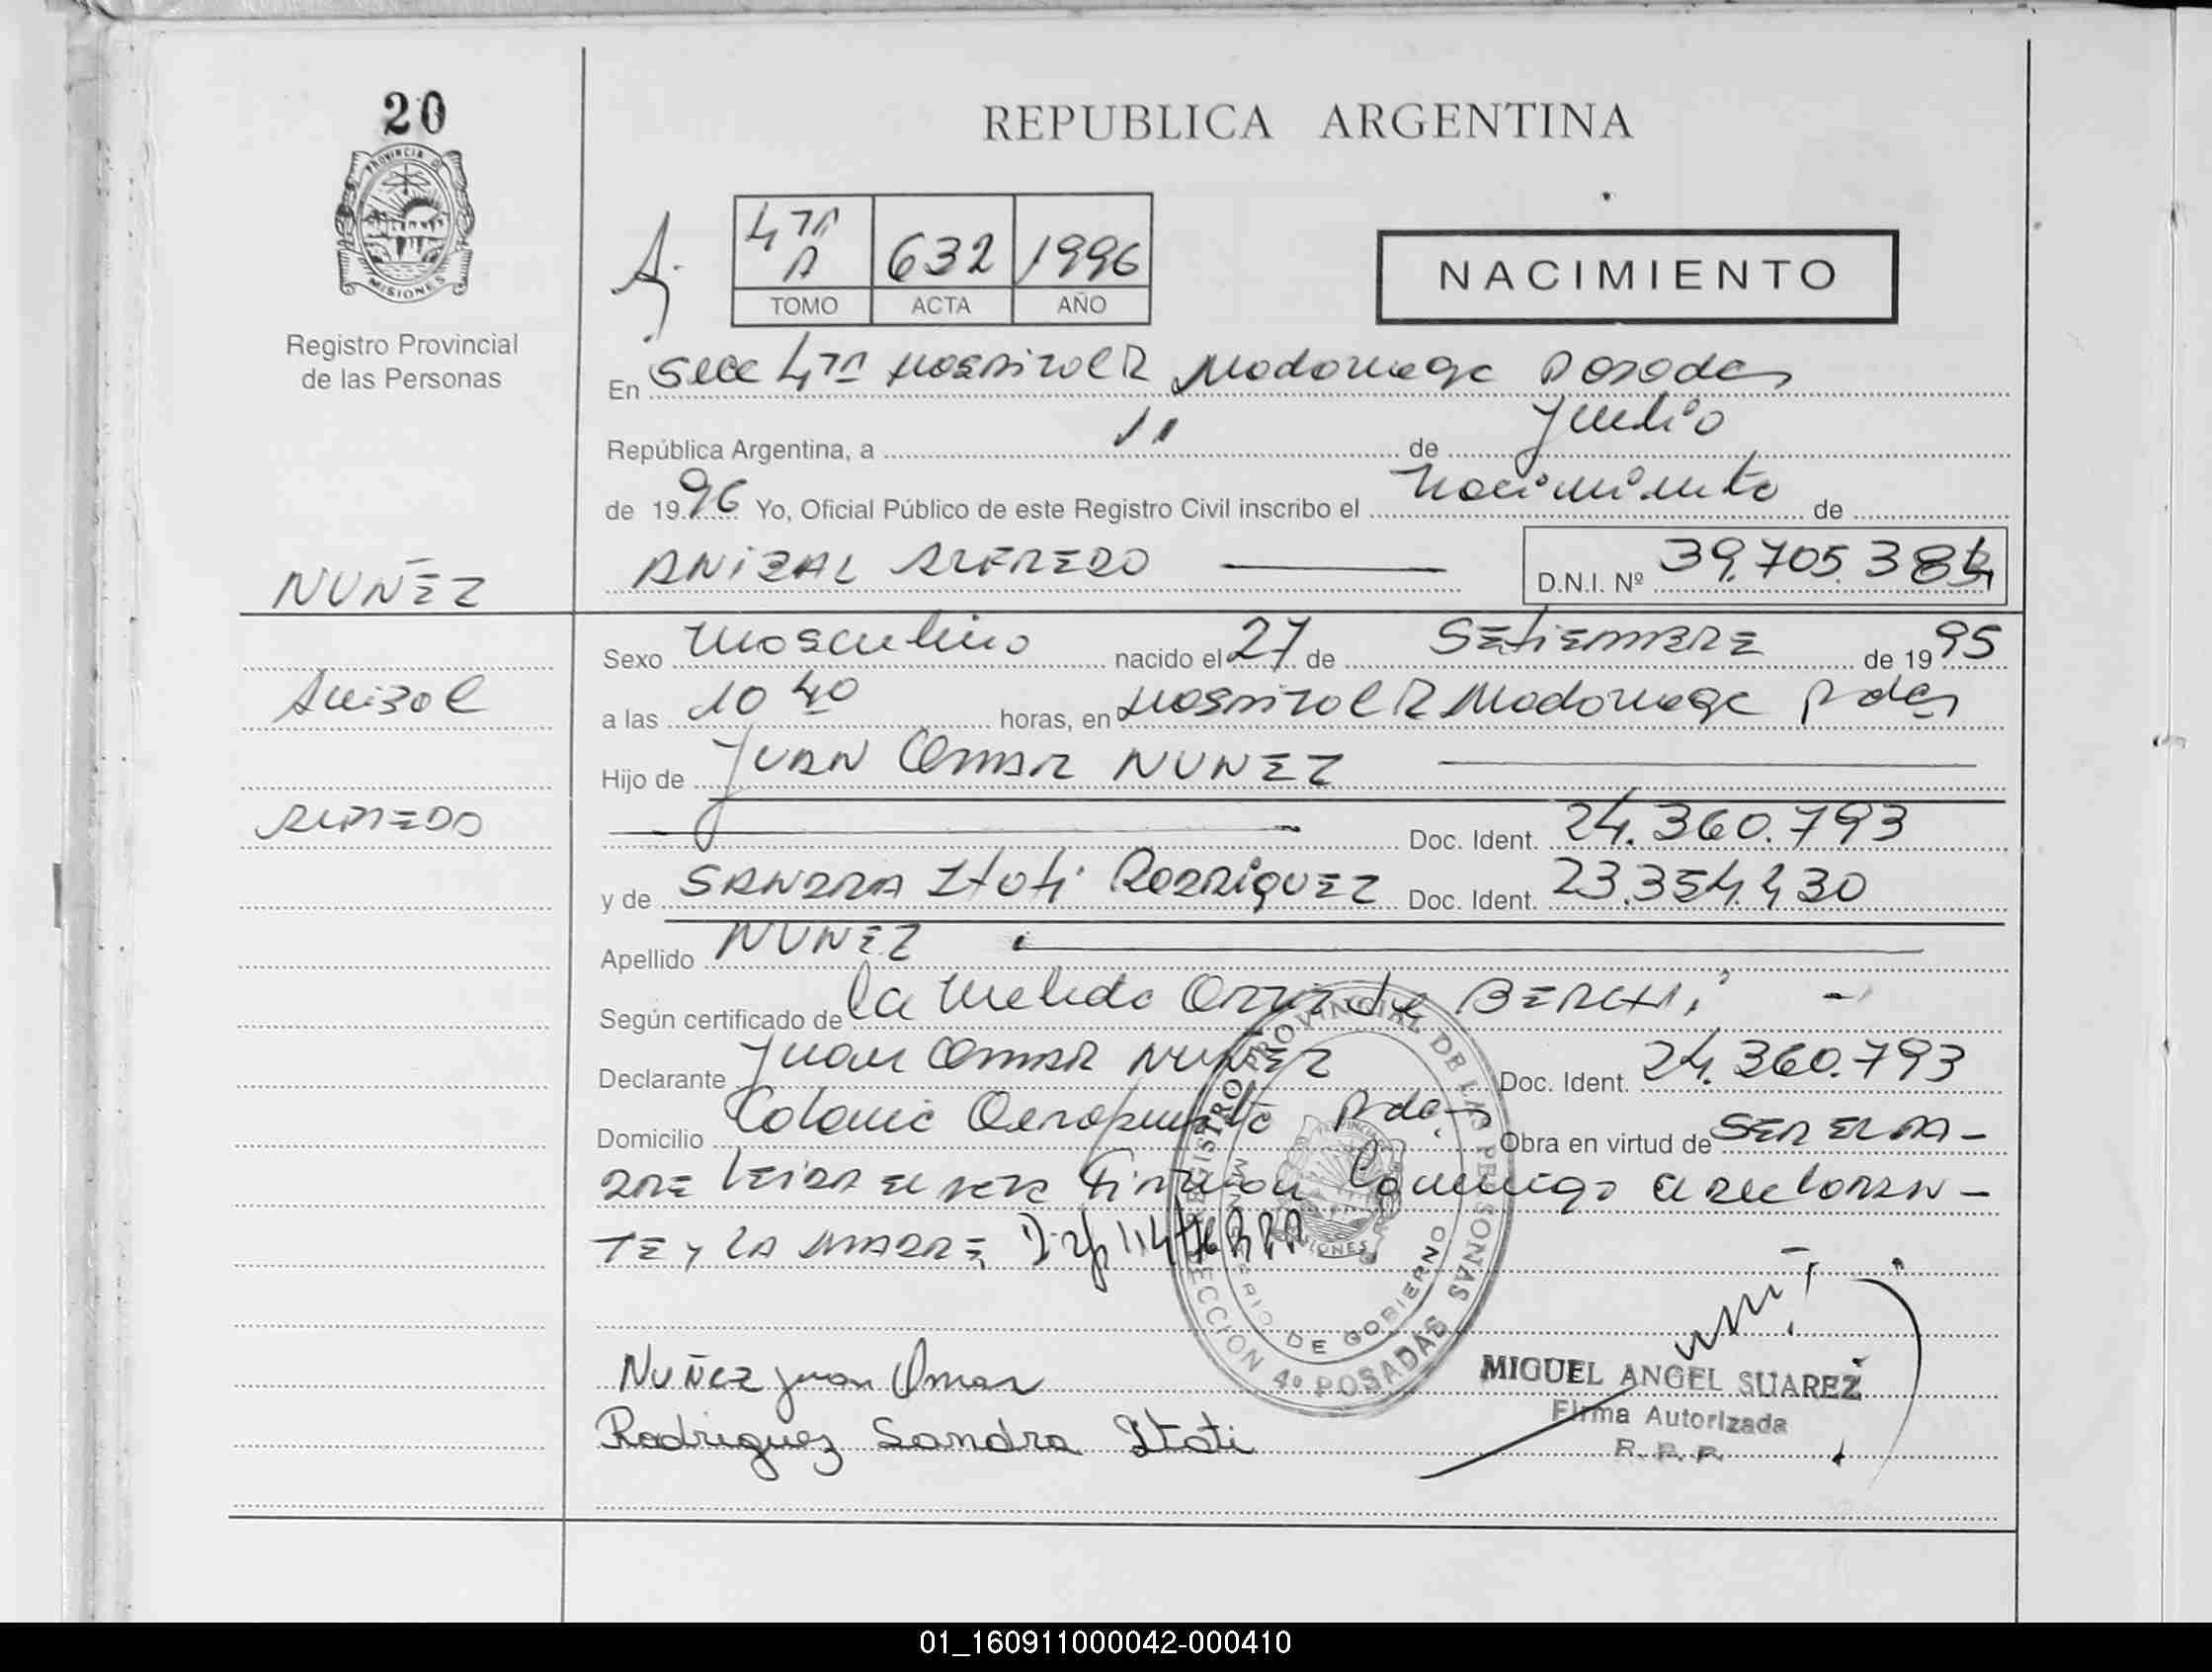 20
REPUBLICA ARGENTINA
PROVINCIA D MISIONES
4ta A 632 1996
TOMO ACTA AÑO
NACIMIENTO
Registro Provincial
de las Personas
En Secc 4ta Hospital R Madariaga Posadas
República Argentina, a 11 de Julio
de 1996 Yo, Oficial Público de este Registro Civil inscribo el Nacimiento de
NUÑEZ
ANIBAL ALFREDO D.N.I. Nº 39.705.384
Sexo Masculino nacido el 27 de SEtiEMBRE de 1995
Anibal
a las 10 40 horas, en Hospital R Madariaga Pdas
Hijo de JUAN OMAR NUÑEZ
ALFREDO
Doc. Ident. 24.360.793
y de SANDRA Itati RODRIGUEZ Doc. Ident. 23.354.430
Apellido NUÑEZ
Según certificado de la Medida BERCHI
Declarante Juan OMAR NUÑEZ Doc. Ident. 24.360.793
Domicilio Colonia Aeropuerto Pdas Obra en virtud de SER EL PA-
DRE LEIDA EL ACTA Firman Conmigo el DECLARAN-
TE y LA MADRE
REGISTRO PROVINCIAL DE LAS PERSONAS
MINISTERIO DE GOBIERNO
SECCION 4º POSADAS
Nuñez Juan Omar
MIGUEL ANGEL SUAREZ
Firma Autorizada
R. P. P.
Rodriguez Sandra Itati
01_160911000042-000410